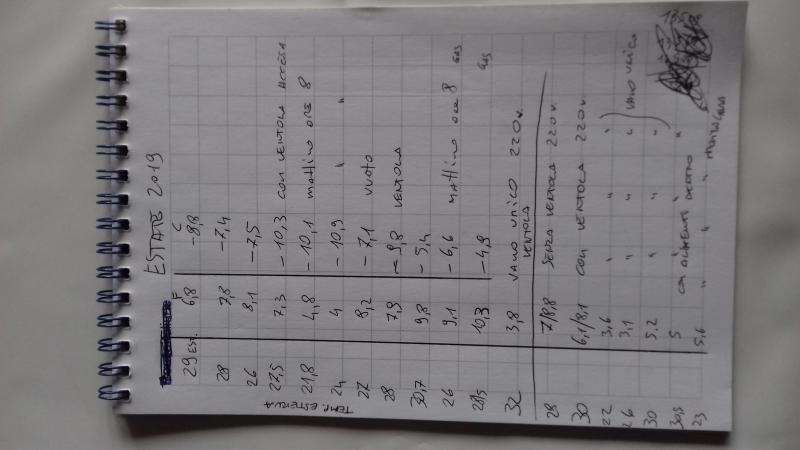 ESTATE 2019
TEMP. ESTERNA
F C
29 EST. 6,8 -8,8
28 7,8 -7,4
26 8,1 -7,5
27,5 7,3 -10,3 CON VENTOLA ACCESA
21,8 4,8 -10,1 MATTINO ORE 8
24 4 -10,9 " "
27 8,2 -7,1 VUOTO
28 7,9 -9,8 VENTOLA
30,7 9,8 -5,4
26 9,1 -6,6 MATTINO ORE 8 GAS
28,5 10,3 -4,9 GAS
32 3,8 VANO UNICO 220 V.
VENTOLA
28 7/8,8 SENZA VENTOLA 220 V.
30 6,1/8,1 CON VENTOLA 220 V.
22 3,6 " " "
26 3,1 " " " VANO UNICO
30 5,2 " " "
30,5 5 CON ALIMENTI DENTRO "
23 5,6 " " "